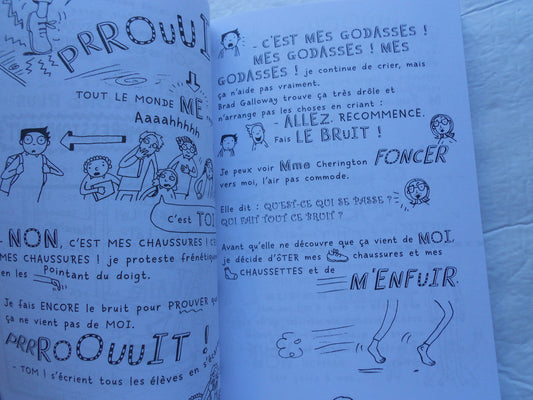 PRROUUI
TOUT LE MONDE ME
Aaaahhhhh
C'est TOI
- NON, C'EST MES CHAUSSURES ! C'E
MES CHAUSSURES ! je proteste frénétiq
en les pointant du doigt.
Je fais ENCORE le bruit pour PROUVER que
ça ne vient pas de MOI.
PRRROOUUIT !
- TOM ! s'écrient tous les élèves en s'éca
- C'EST MES GODASSES !
MES GODASSES ! MES
GODASSES ! je continue de crier, mais
ça n'aide pas vraiment.
Brad Galloway trouve ça très drôle et
n'arrange pas les choses en criant :
- ALLEZ. RECOMMENCE.
Fais LE BRUIT !
Je peux voir Mme Cherington FONCER
vers moi, l'air pas commode.
Elle dit : QU'EST-CE QUI SE PASSE ?
QUI FAIT TOUT CE BRUIT ?
Avant qu'elle ne découvre que ça vient de MOI,
je décide d'ÔTER mes chaussures et mes
CHAUSSETTES et de M'ENFUIR.